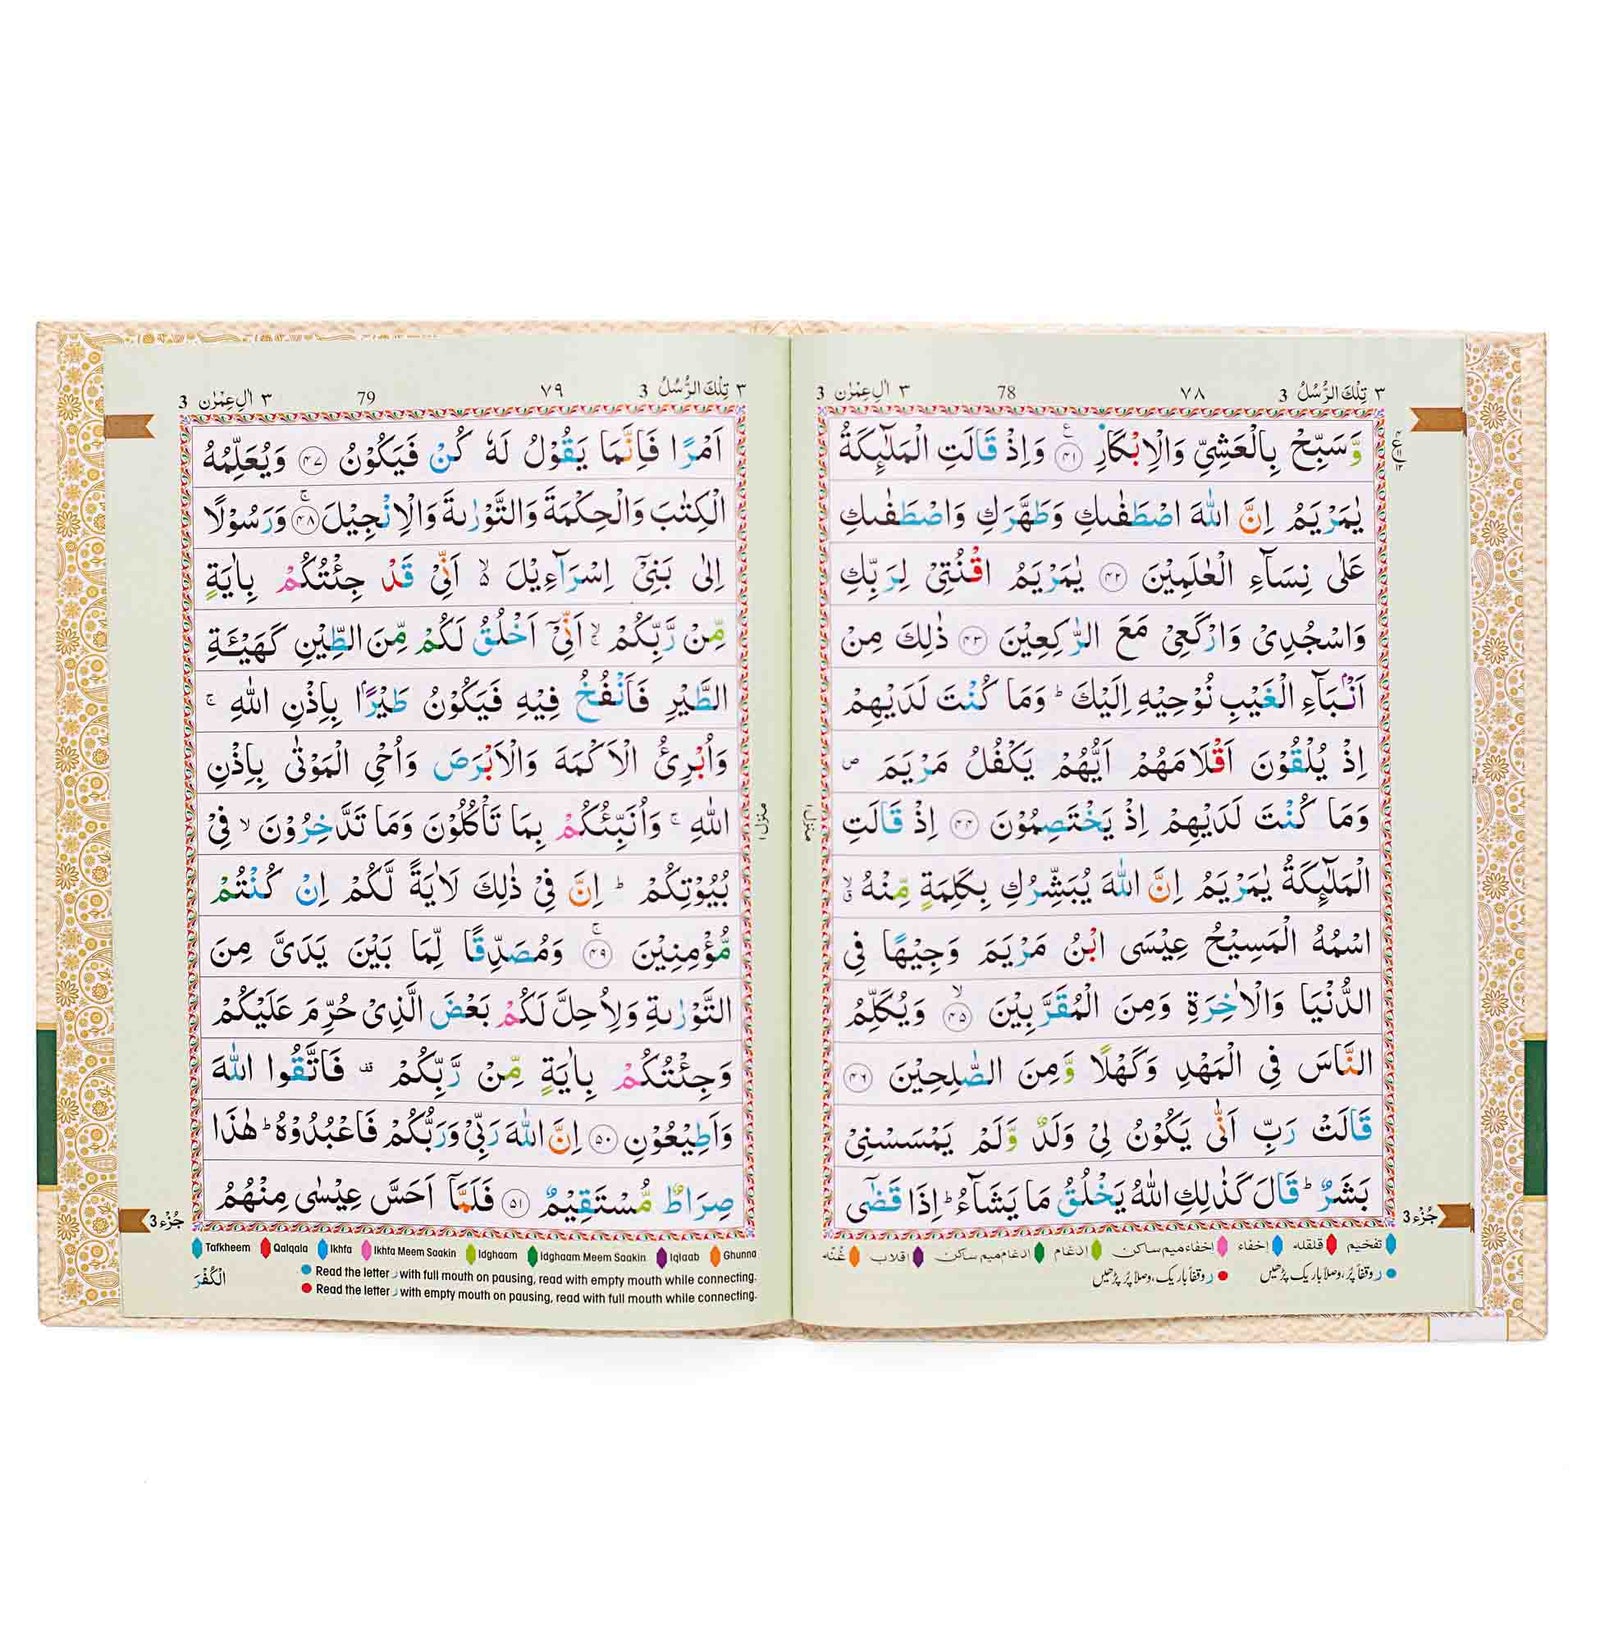 ٣ تِلْكَ الرُّسُلُ 3
٧٨
78
٣ اٰلِ عِمْرٰن 3
وَّسَبِّحْ بِالْعَشِيِّ وَالْاِبْكَارِ ﴿٤١﴾ وَاِذْ قَالَتِ الْمَلٰٓئِكَةُ
يٰمَرْيَمُ اِنَّ اللّٰهَ اصْطَفٰىكِ وَطَهَّرَكِ وَاصْطَفٰىكِ
عَلٰى نِسَآءِ الْعٰلَمِيْنَ ﴿٤٢﴾ يٰمَرْيَمُ اقْنُتِيْ لِرَبِّكِ
وَاسْجُدِيْ وَارْكَعِيْ مَعَ الرّٰكِعِيْنَ ﴿٤٣﴾ ذٰلِكَ مِنْ
اَنْۢبَآءِ الْغَيْبِ نُوْحِيْهِ اِلَيْكَ ؕ وَمَا كُنْتَ لَدَيْهِمْ
اِذْ يُلْقُوْنَ اَقْلَامَهُمْ اَيُّهُمْ يَكْفُلُ مَرْيَمَ ص
وَمَا كُنْتَ لَدَيْهِمْ اِذْ يَخْتَصِمُوْنَ ﴿٤٤﴾ اِذْ قَالَتِ
الْمَلٰٓئِكَةُ يٰمَرْيَمُ اِنَّ اللّٰهَ يُبَشِّرُكِ بِكَلِمَةٍ مِّنْهُ ۙ
اسْمُهُ الْمَسِيْحُ عِيْسَى ابْنُ مَرْيَمَ وَجِيْهًا فِي
الدُّنْيَا وَالْاٰخِرَةِ وَمِنَ الْمُقَرَّبِيْنَ ۙ﴿٤٥﴾ وَيُكَلِّمُ
النَّاسَ فِي الْمَهْدِ وَكَهْلًا وَّمِنَ الصّٰلِحِيْنَ ﴿٤٦﴾
قَالَتْ رَبِّ اَنّٰى يَكُوْنُ لِيْ وَلَدٌ وَّلَمْ يَمْسَسْنِيْ
بَشَرٌ ؕ قَالَ كَذٰلِكِ اللّٰهُ يَخْلُقُ مَا يَشَآءُ ؕ اِذَا قَضٰٓى
منزل ١
جُزْء 3
تفخیم قلقله إخفاء إخفاء میم ساکن إدغام إدغام میم ساکن اقلاب غُنّه
ر وقفاً پُر، وصلاً باریک پڑھیں
ر وقفاً باریک، وصلاً پُر پڑھیں
٣ تِلْكَ الرُّسُلُ 3
٧٩
79
٣ اٰلِ عِمْرٰن 3
اَمْرًا فَاِنَّمَا يَقُوْلُ لَهٗ كُنْ فَيَكُوْنُ ﴿٤٧﴾ وَيُعَلِّمُهُ
الْكِتٰبَ وَالْحِكْمَةَ وَالتَّوْرٰىةَ وَالْاِنْجِيْلَ ۚ﴿٤٨﴾ وَرَسُوْلًا
اِلٰى بَنِيْٓ اِسْرَآءِيْلَ ۙ۬ اَنِّيْ قَدْ جِئْتُكُمْ بِاٰيَةٍ
مِّنْ رَّبِّكُمْ ۙ اَنِّيْٓ اَخْلُقُ لَكُمْ مِّنَ الطِّيْنِ كَهَيْـَٔةِ
الطَّيْرِ فَاَنْفُخُ فِيْهِ فَيَكُوْنُ طَيْرًۢا بِاِذْنِ اللّٰهِ ۚ
وَاُبْرِئُ الْاَكْمَهَ وَالْاَبْرَصَ وَاُحْيِ الْمَوْتٰى بِاِذْنِ
اللّٰهِ ۚ وَاُنَبِّئُكُمْ بِمَا تَاْكُلُوْنَ وَمَا تَدَّخِرُوْنَ ۙ فِيْ
بُيُوْتِكُمْ ؕ اِنَّ فِيْ ذٰلِكَ لَاٰيَةً لَّكُمْ اِنْ كُنْتُمْ
مُّؤْمِنِيْنَ ۚ﴿٤٩﴾ وَمُصَدِّقًا لِّمَا بَيْنَ يَدَيَّ مِنَ
التَّوْرٰىةِ وَلِاُحِلَّ لَكُمْ بَعْضَ الَّذِيْ حُرِّمَ عَلَيْكُمْ
وَجِئْتُكُمْ بِاٰيَةٍ مِّنْ رَّبِّكُمْ قف فَاتَّقُوا اللّٰهَ
وَاَطِيْعُوْنِ ﴿٥٠﴾ اِنَّ اللّٰهَ رَبِّيْ وَرَبُّكُمْ فَاعْبُدُوْهُ ؕ هٰذَا
صِرَاطٌ مُّسْتَقِيْمٌ ﴿٥١﴾ فَلَمَّآ اَحَسَّ عِيْسٰى مِنْهُمُ
منزل ١
جُزْء 3
Tafkheem Qalqala Ikhfa Ikhfa Meem Saakin Idghaam Idghaam Meem Saakin Iqlaab Ghunna
Read the letter ر with full mouth on pausing, read with empty mouth while connecting.
Read the letter ر with empty mouth on pausing, read with full mouth while connecting.
الْكُفْرَ